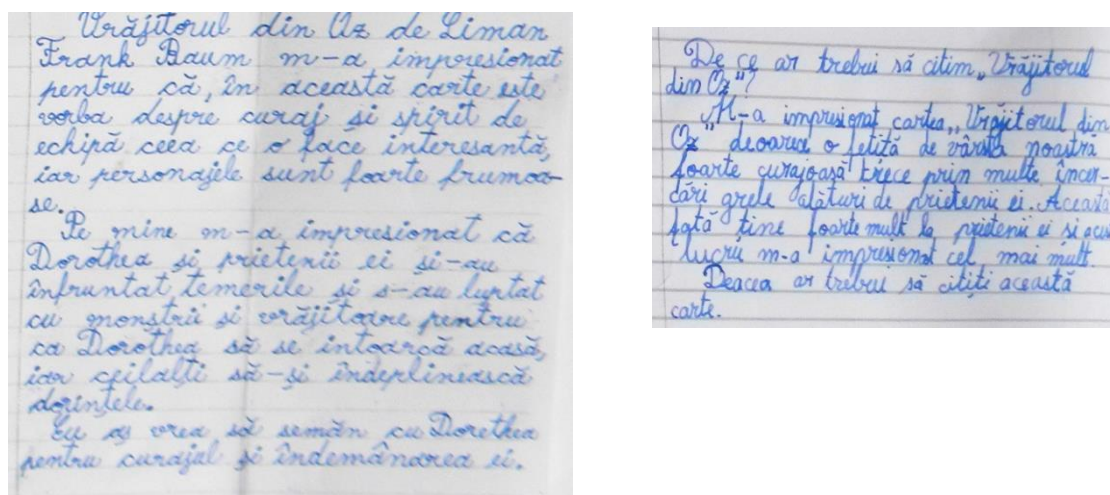 Vrăjitorul din Oz de Liman
Frank Baum m-a impresionat
pentru că, în această carte este
vorba despre curaj și spirit de
echipă ceea ce o face interesantă,
iar personajele sunt foarte frumoa-
se.
Pe mine m-a impresionat că
Dorothea și prietenii ei și-au
înfruntat temerile și s-au luptat
cu monștrii și vrăjitoare pentru
ca Dorothea să se întoarcă acasă,
iar ceilalți să-și îndeplinească
dorințele.
Eu aș vrea să semăn cu Dorethea
pentru curajul și îndemânarea ei.
De ce ar trebui să citim „Vrăjitorul
din Oz"?
M-a impresionat cartea „Vrăjitorul din
Oz" deoarece o fetiță de vârsta noastră
foarte curajoasă trece prin multe încer-
cări grele alături de prietenii ei. Aceasta
fată ține foarte mult la prietenii ei și acest
lucru m-a impresionat cel mai mult.
Deacea ar trebui să citiți această
carte.